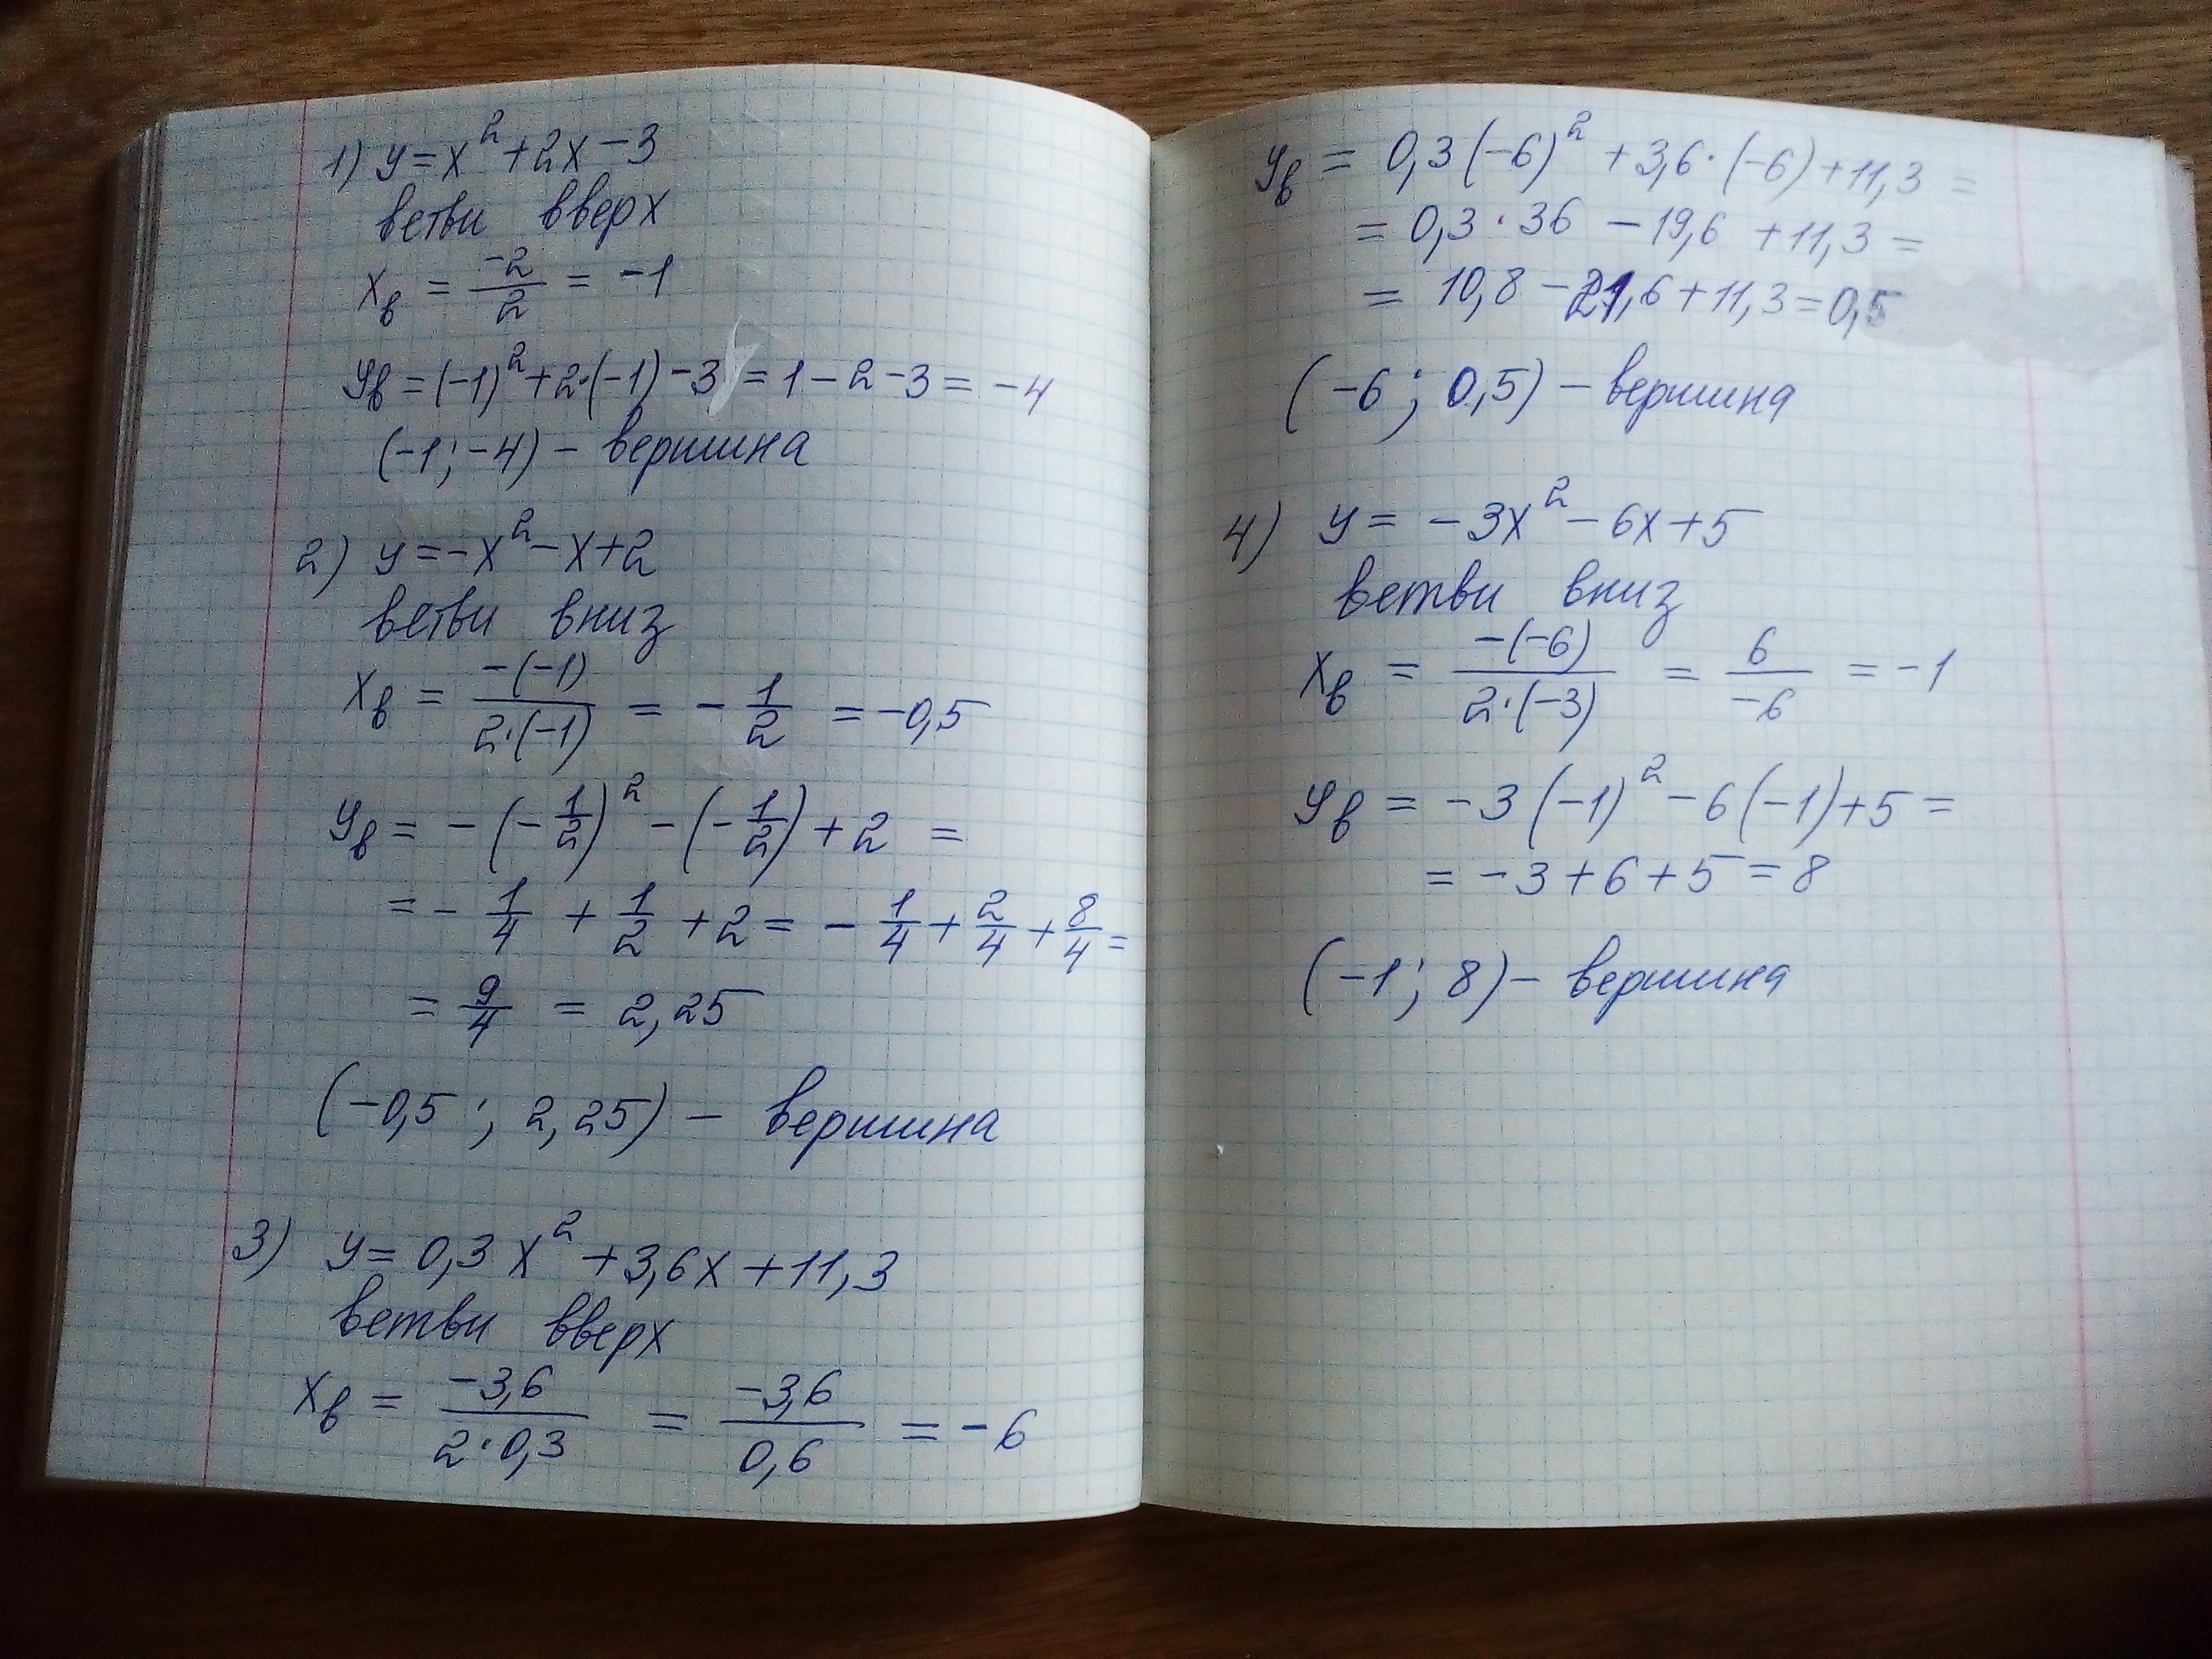 1) y=x²+2x-3
ветви вверх
xв = -2/2 = -1
yв = (-1)²+2·(-1)-3 = 1-2-3 = -4
(-1;-4) - вершина
2) y=-x²-x+2
ветви вниз
xв = -(-1)/2·(-1) = -1/2 = -0,5
yв = -(-1/2)² -(-1/2)+2 =
= -1/4 + 1/2 +2 = -1/4+2/4+8/4=
= 9/4 = 2,25
(-0,5; 2,25) - вершина
3) y= 0,3x²+3,6x+11,3
ветви вверх
xв = -3,6/2·0,3 = -3,6/0,6 = -6
yв = 0,3(-6)² +3,6·(-6)+11,3 =
= 0,3·36 -19,6 +11,3 =
= 10,8-21,6+11,3=0,5
(-6; 0,5) - вершина
4) y= -3x²-6x+5
ветви вниз
xв = -(-6)/2·(-3) = 6/-6 = -1
yв = -3(-1)²-6(-1)+5 =
= -3+6+5=8
(-1; 8) - вершина